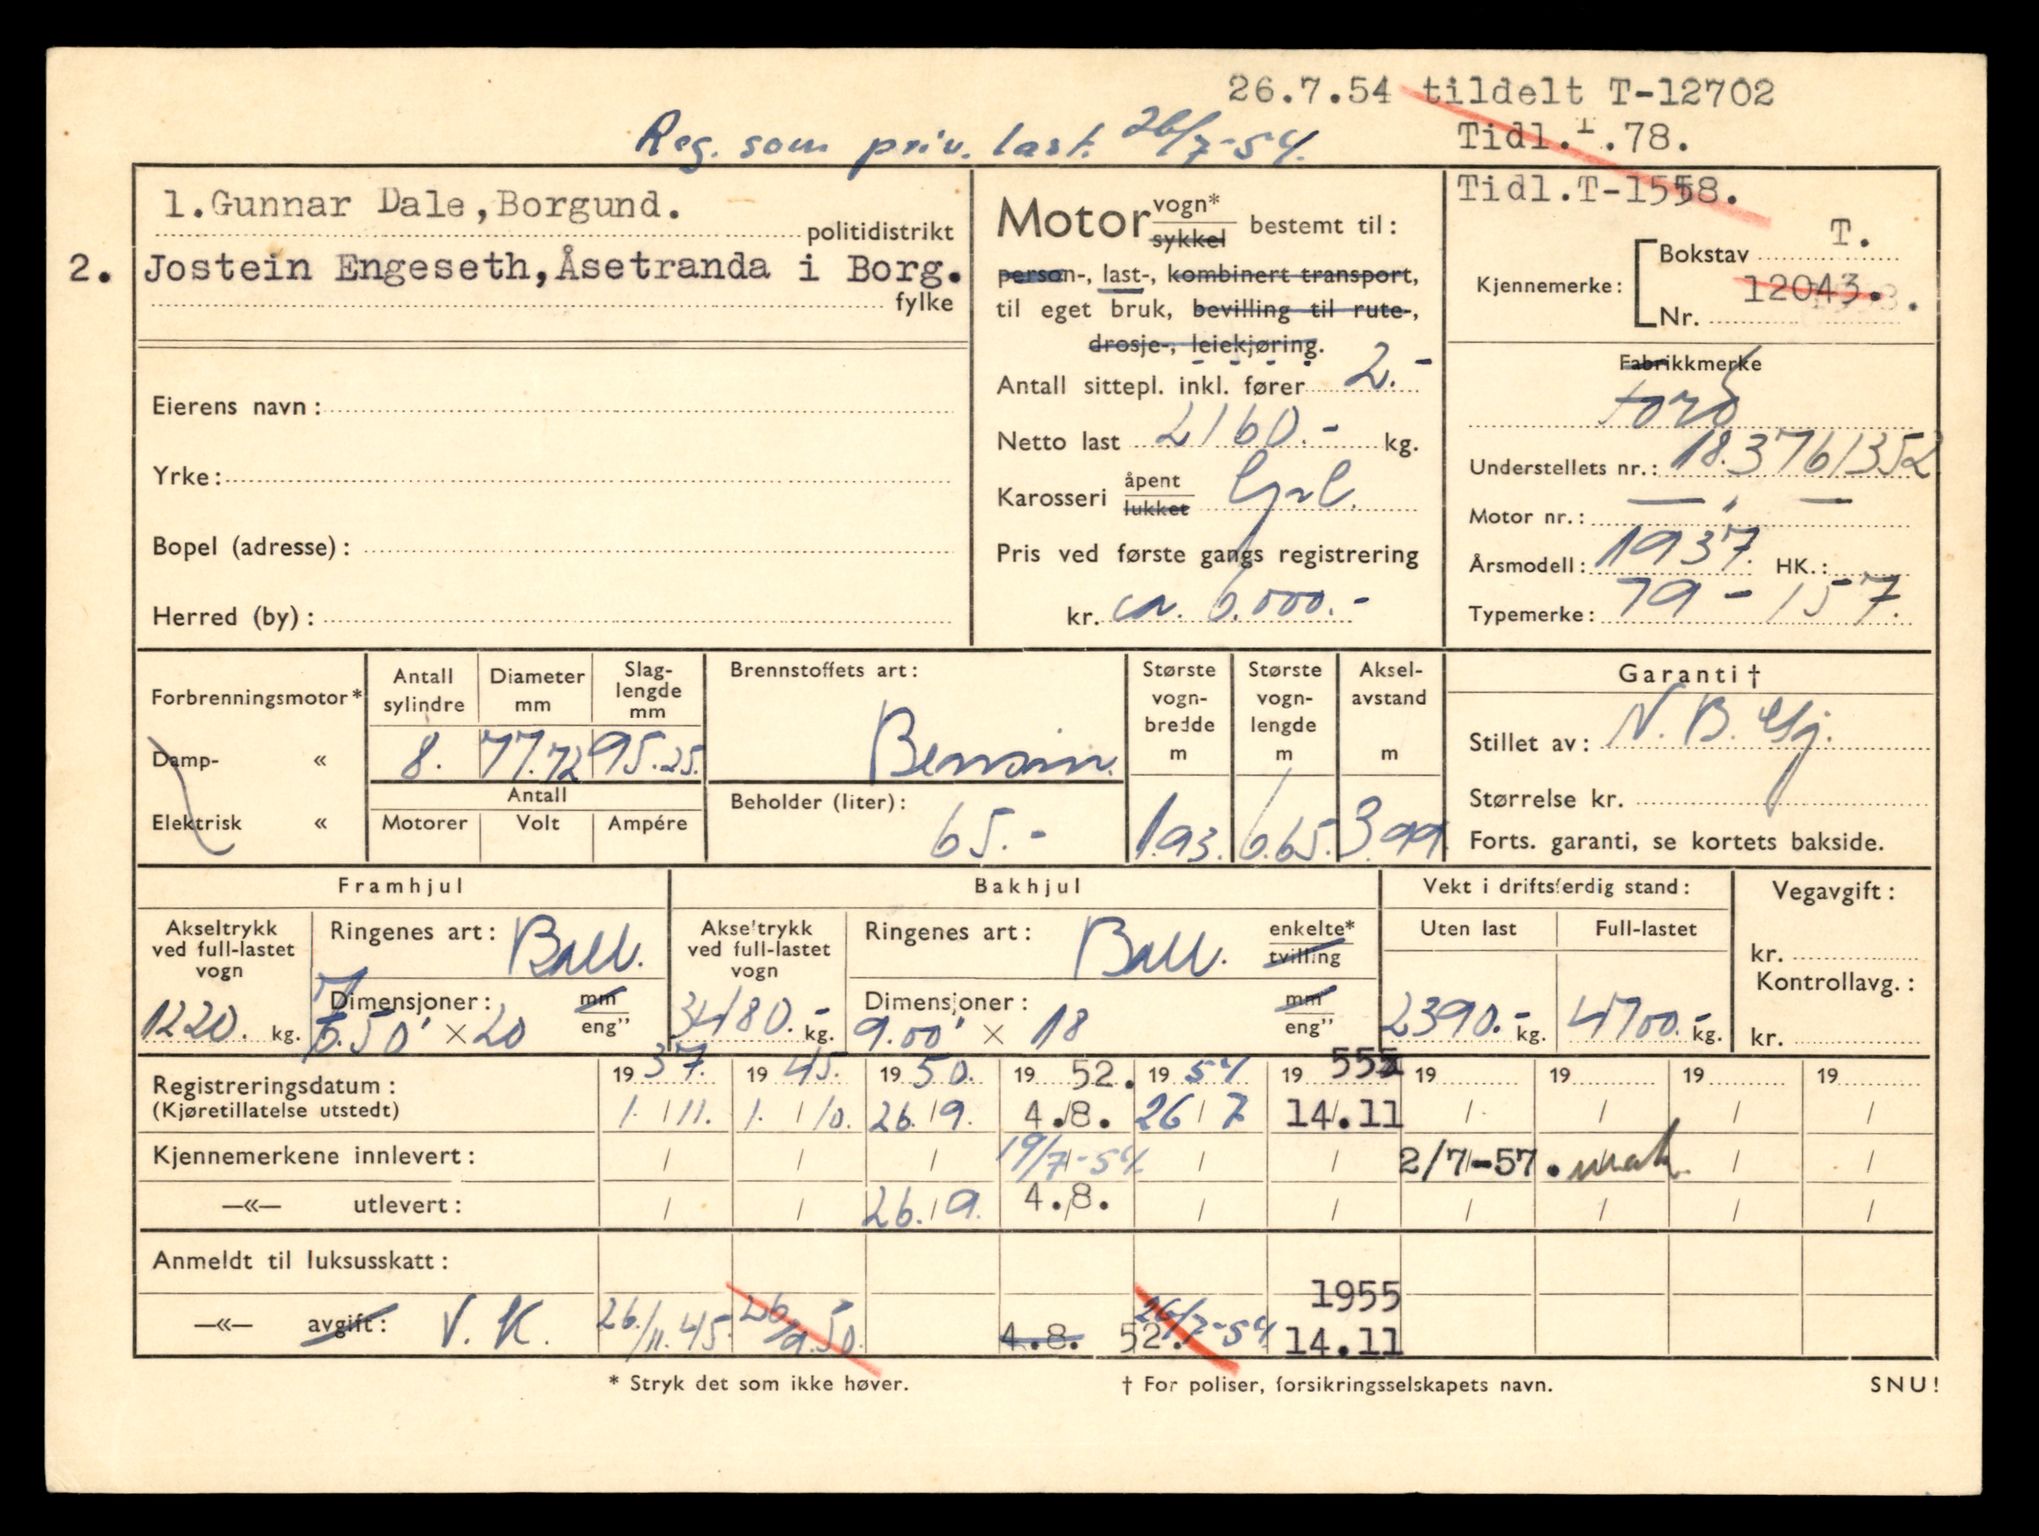 26.7.54 tildelt T-12702
Reg. som priv. last. 26/7-54.
Tidl. T.78.
1.Gunnar Dale,Borgund.
politidistrikt
2. Jostein Engeseth,Åsetranda i Borg.
fylke
Eierens navn:
Yrke:
Bopel (adresse):
Herred (by):
Motor vogn* sykkel bestemt til:
person-, last-, kombinert transport,
til eget bruk, bevilling til rute-,
drosje-, leiekjøring.
Antall sittepl. inkl. fører 2.-
Netto last 2160.- kg.
Karosseri åpent lukket
Pris ved første gangs registrering
kr. ca. 6.000.-
Tidl.T-1558.
Kjennemerke: Bokstav T.
Nr. 12043.
Fabrikkmerke
Ford
Understellets nr.: 18.3761352
Motor nr.: — " —
Årsmodell: 1937. HK.:
Typemerke: 79 - 157.
Forbrenningsmotor*
Damp- «
Elektrisk «
Antall sylindre
Diameter mm
Slag-lengde mm
8. 77.72 95.25.
Antall
Motorer Volt Ampére
Brennstoffets art:
Bensin.
Beholder (liter):
65.-
Største vogn-bredde m
1.93.
Største vogn-lengde m
6.65.
Aksel-avstand m
3.99.
Garanti †
Stillet av: N. B. Gj.
Størrelse kr.
Forts. garanti, se kortets bakside.
Framhjul
Akseltrykk ved full-lastet vogn
1220. kg.
Ringenes art: Ball.
Dimensjoner: mm eng"
7 6.50' × 20
Bakhjul
Akseltrykk ved full-lastet vogn
3480.- kg.
Ringenes art: Ball. enkelte* tvilling
Dimensjoner: mm eng"
9.00' × 18
Vekt i driftsferdig stand:
Uten last Full-lastet
2390.- kg. 4700.- kg.
Vegavgift:
kr.
Kontrollavg.:
kr.
Registreringsdatum: 19 37. 19 45. 19 50. 19 52. 19 54 19 555 19 19 19 19
(Kjøretillatelse utstedt) 1. / 11. 1. / 10. 26. / 9. 4./8. 26 / 7 14.11 / / / /
Kjennemerkene innlevert: / / / 19/7-54. / / 2/7-57. mak. / /
—«— utlevert: / / 26. / 9. 4./8. / / / / / /
Anmeldt til luksusskatt:
1955
—«— avgift: V. K. 26./11.45. 26/9.50. 4.8. 52. 26/7-54 14.11
* Stryk det som ikke høver.
† For poliser, forsikringsselskapets navn.
SNU!